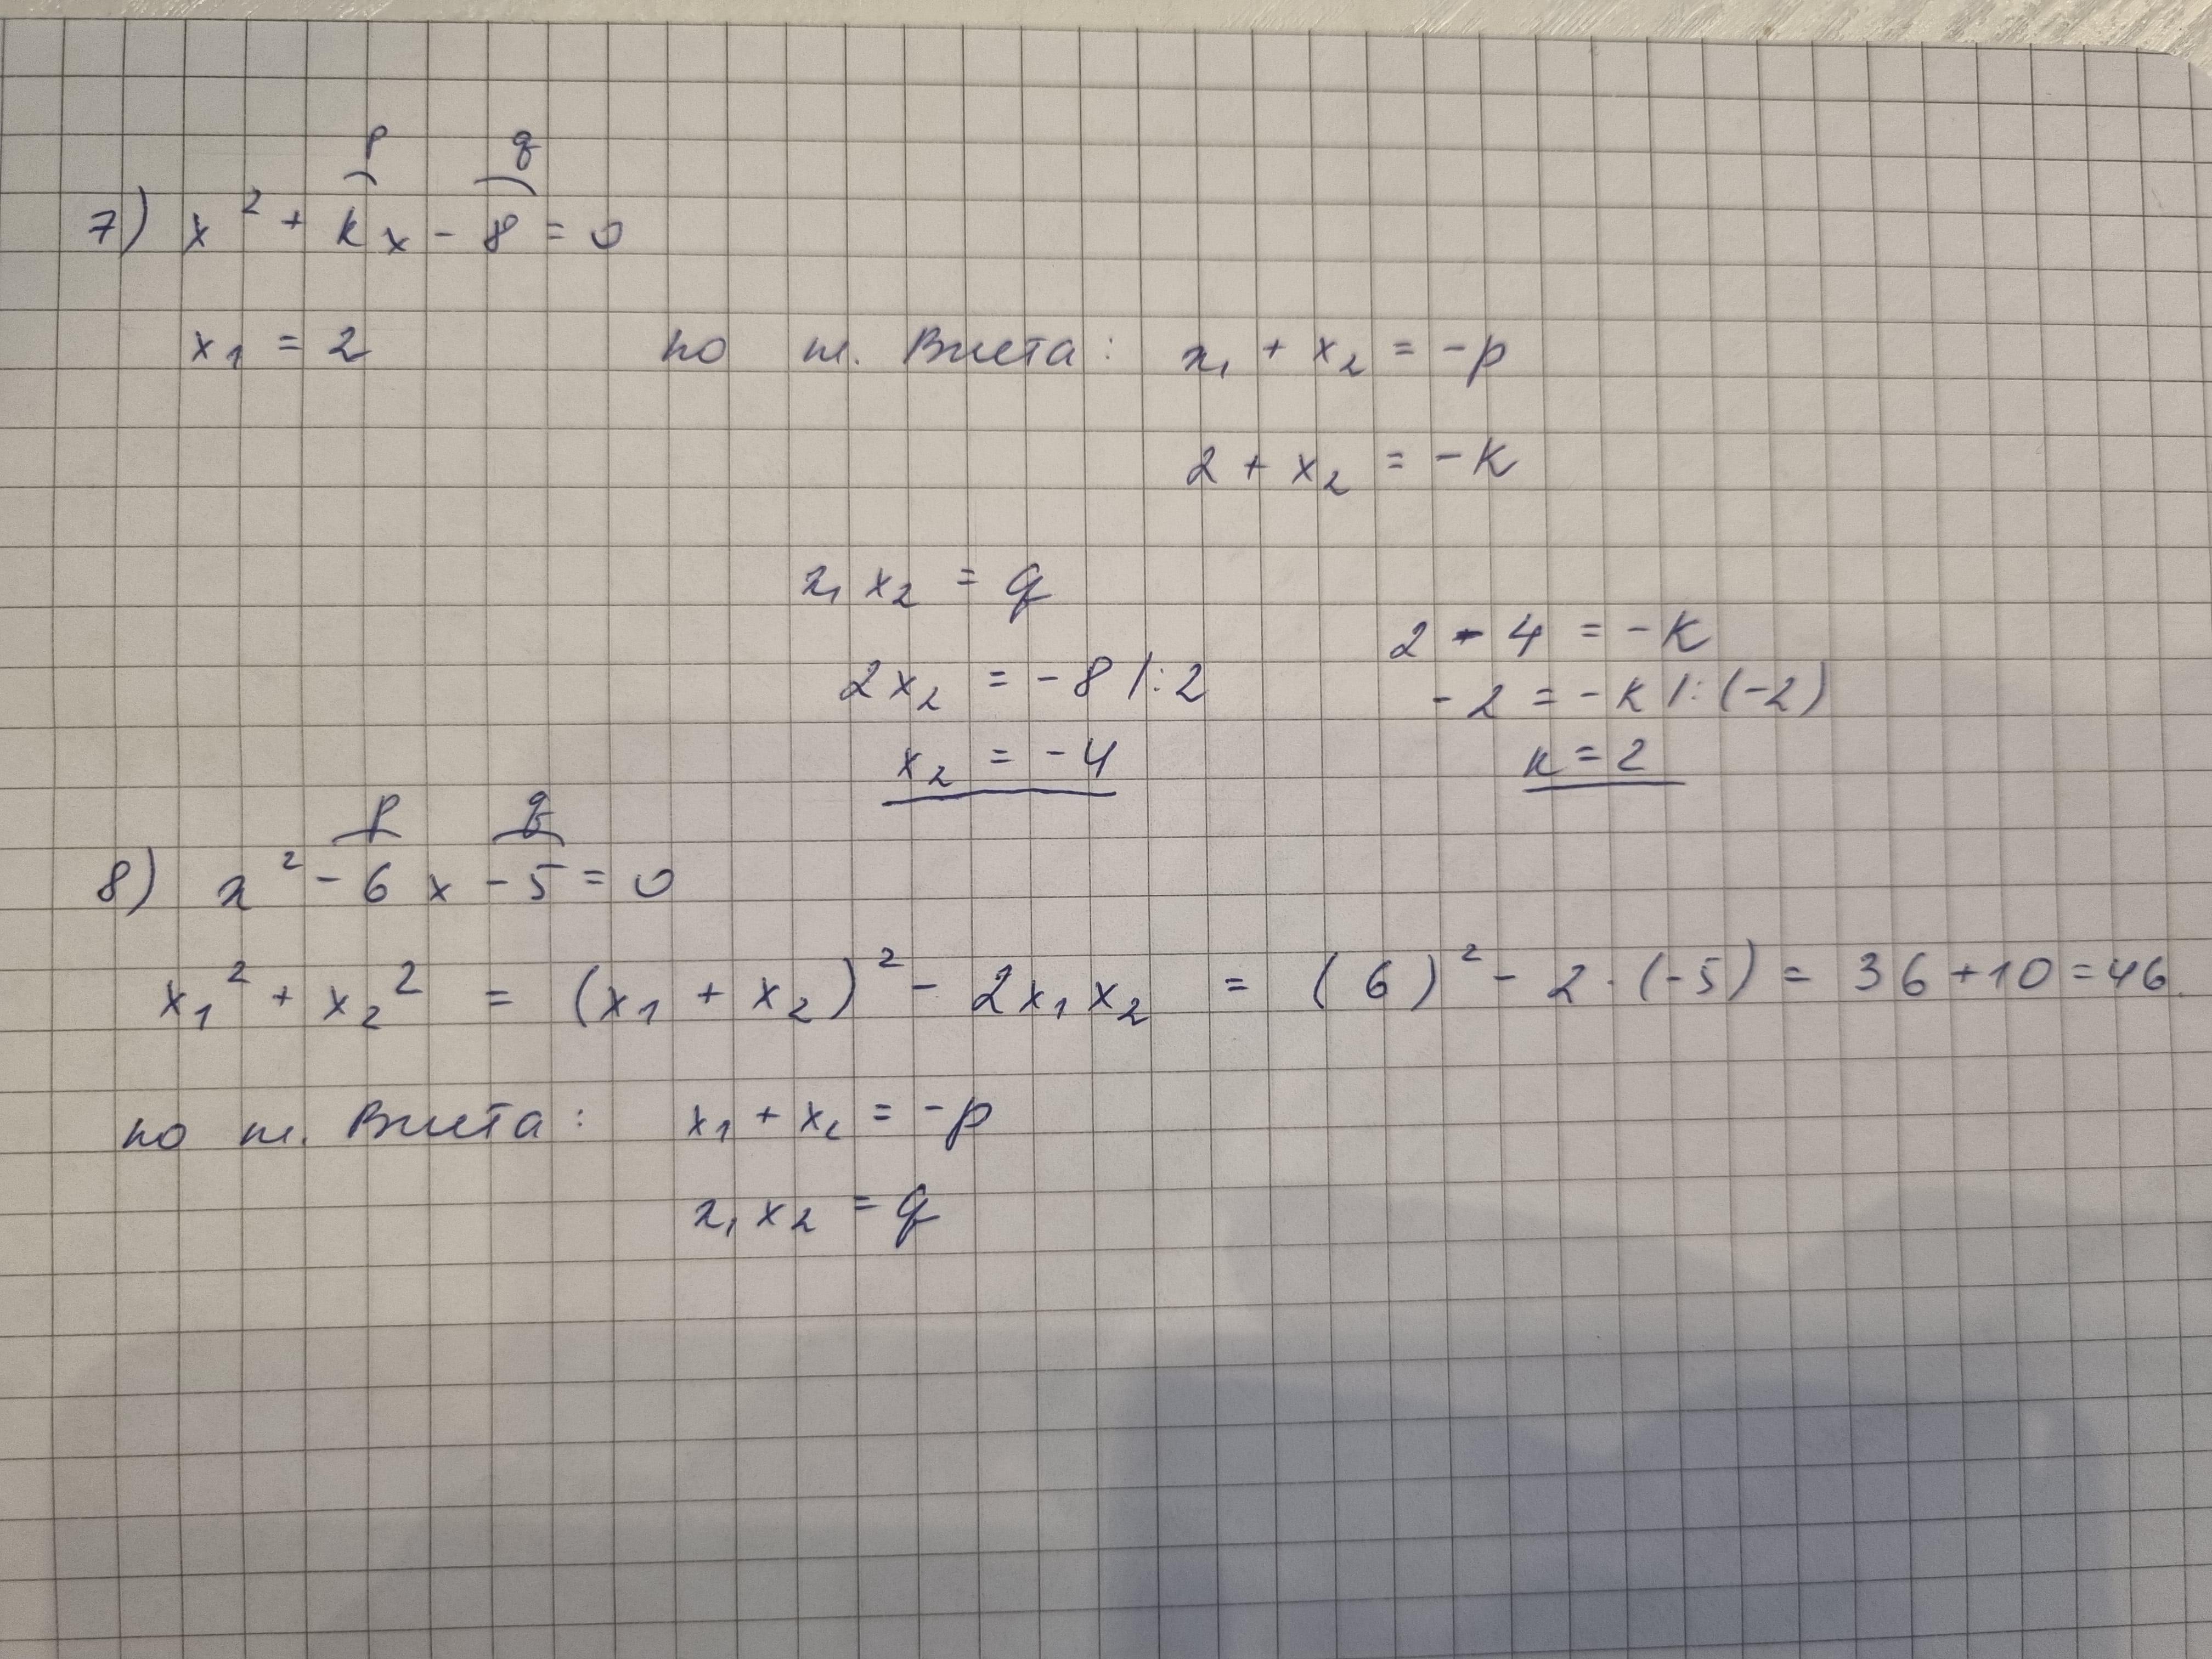 p q
7) x² + kx - 8 = 0
x₁ = 2 по т. Виета: x₁ + x₂ = -p
2 + x₂ = -k
x₁ x₂ = q
2 - 4 = -k
2x₂ = -8 |:2
-2 = -k |:(-2)
x₂ = -4
k = 2
p q
8) x² - 6x - 5 = 0
x₁² + x₂² = (x₁ + x₂)² - 2x₁x₂ = (6)² - 2·(-5) = 36 + 10 = 46.
по т. Виета: x₁ + x₂ = -p
x₁ x₂ = q